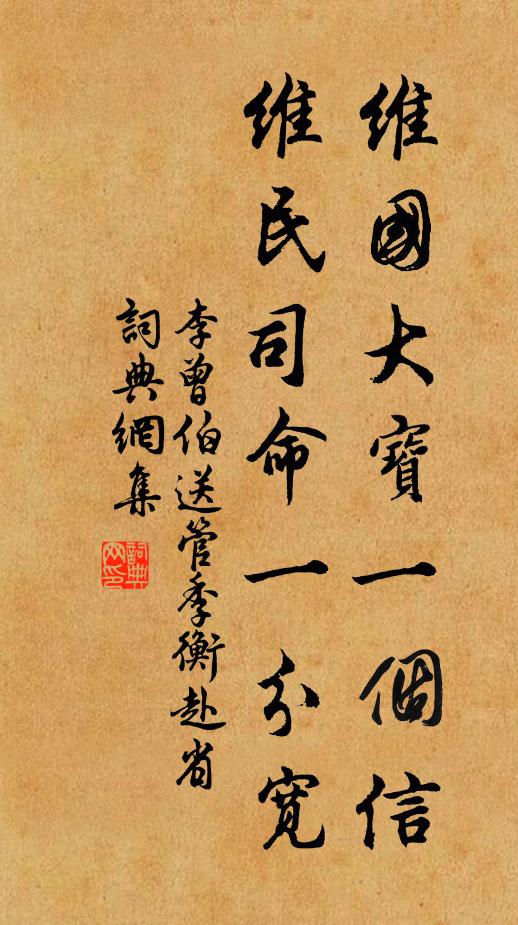 維國大寶一個信
維民司命一分寬
李曾伯送管季衡赴省
詞典網集
詞典網印